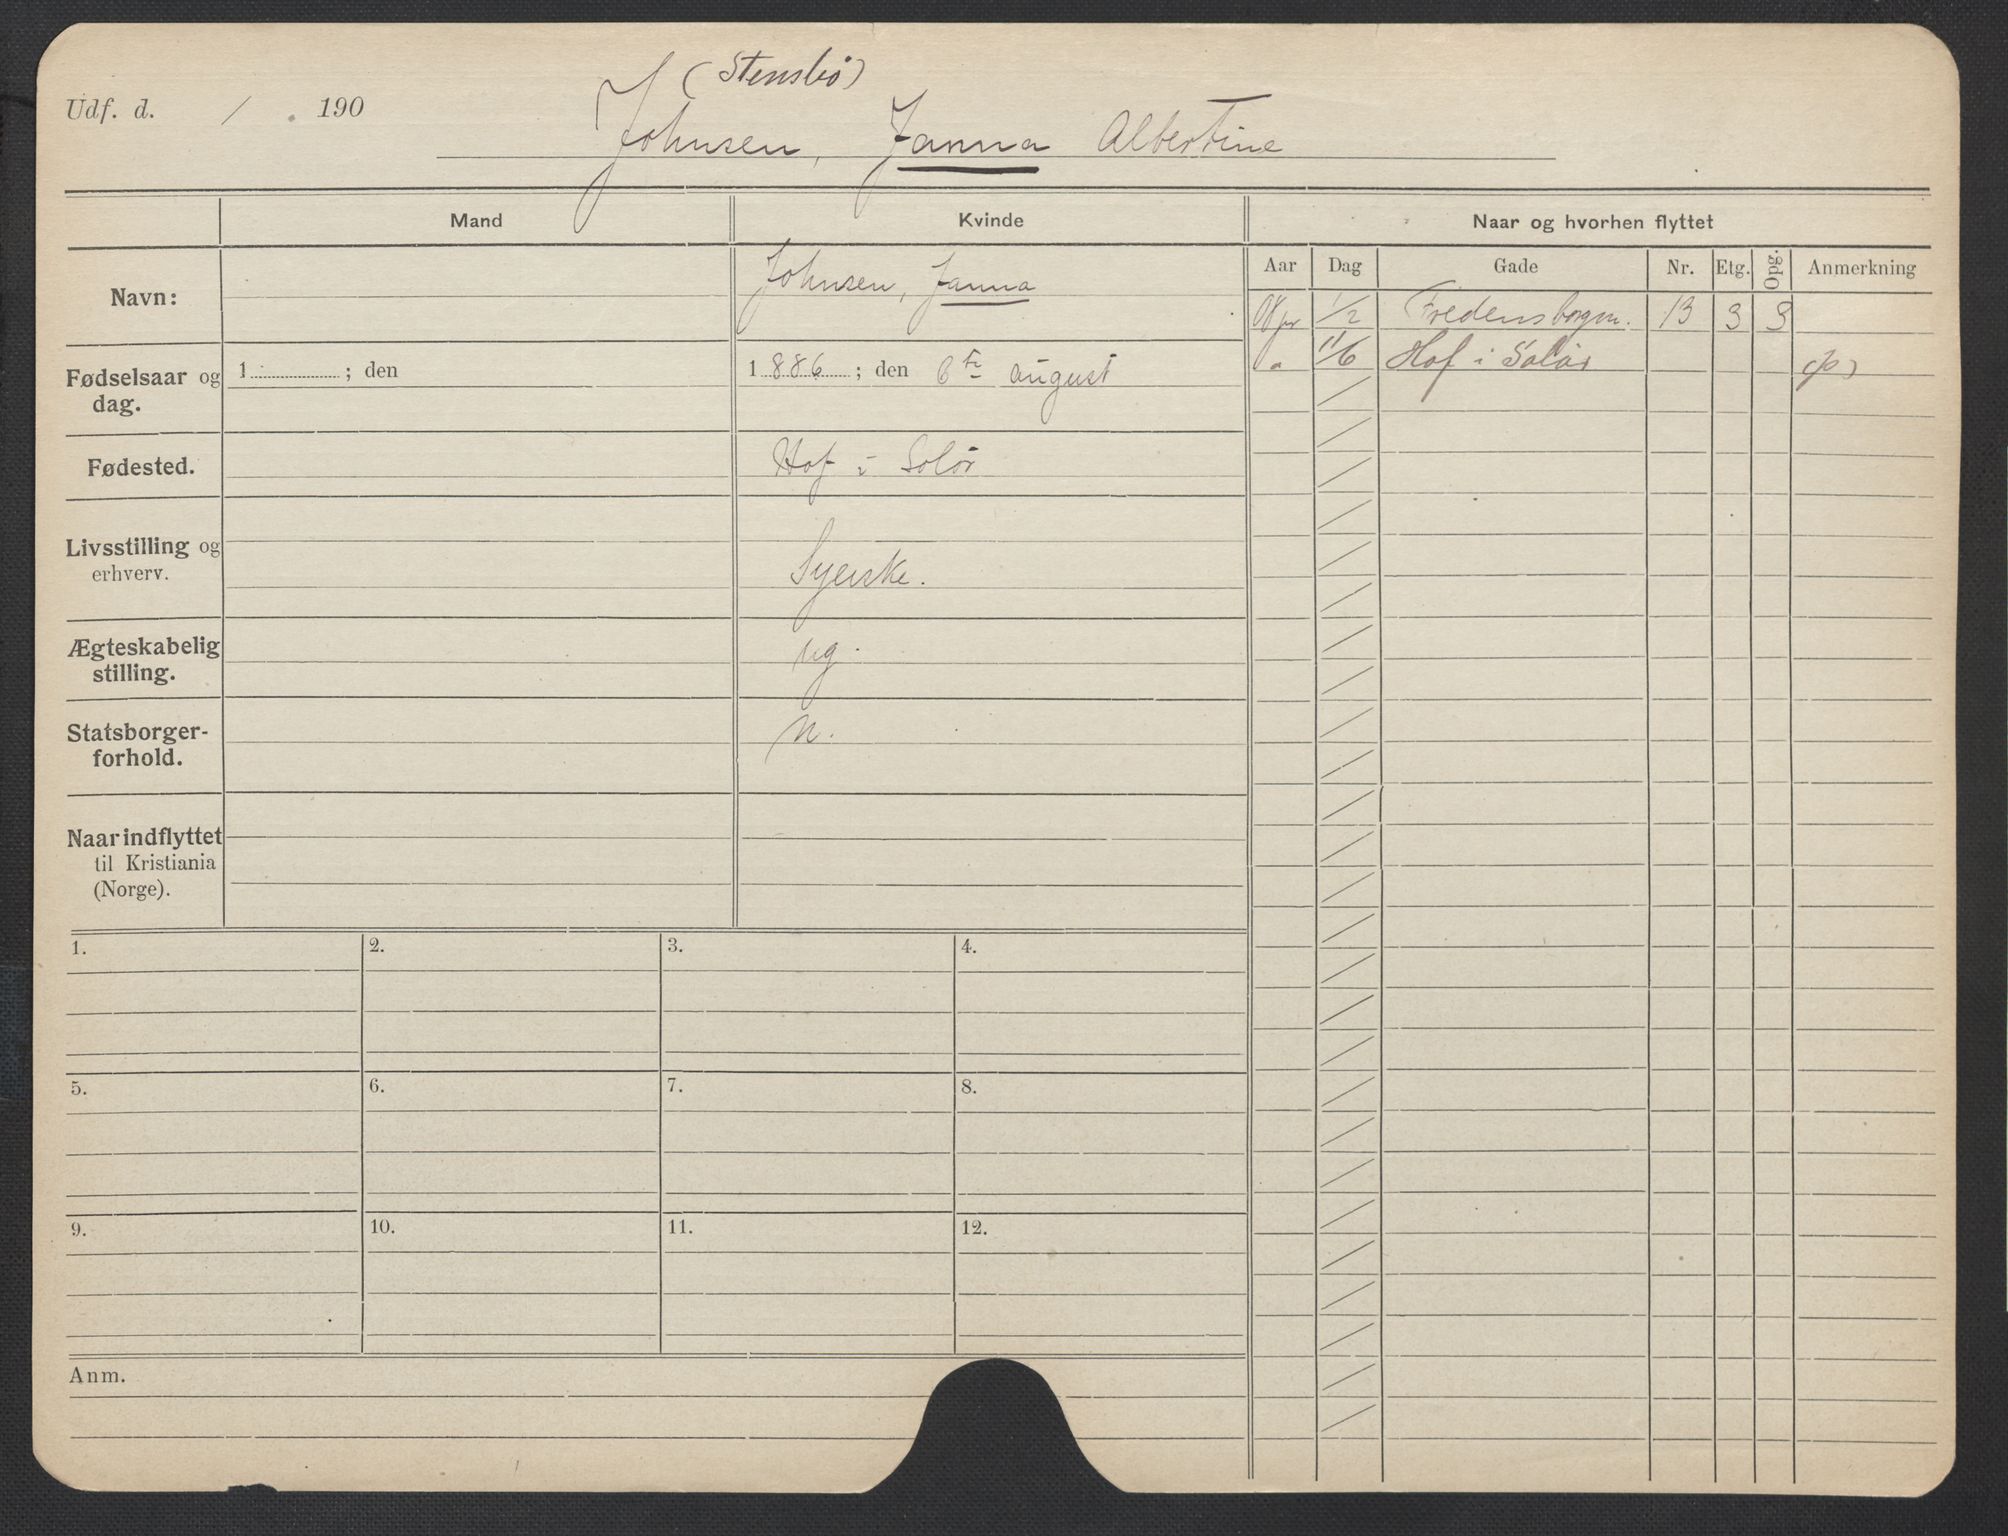 (Stensbö)
Udf. d. / . 190
Johnsen, Janna Albertine
Mand Kvinde Naar og hvorhen flyttet
Aar Dag Gade Nr. Etg. Opg. Anmerkning
Navn: Johnsen, Janna
08 1/2 Fredensborgm. 13 3 3
" 11/6 Hof i Solør (p)
Fødselsaar og dag. 1 ; den 1886 ; den 6te august
Fødested. Hof i Solör
Livsstilling og erhverv. Syerske.
Ægteskabelig stilling. ug.
Statsborgerforhold. n.
Naar indflyttet
til Kristiania
(Norge).
1. 2. 3. 4.
5. 6. 7. 8.
9. 10. 11. 12.
Anm.